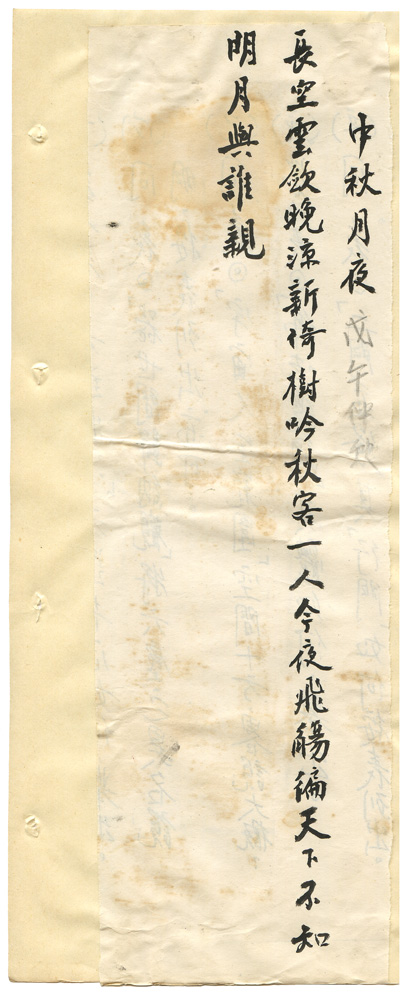 中秋月夜 戊午仲秋
長空雲歛晚涼新倚樹吟秋客一人今夜飛觴徧天下不知
明月與誰親